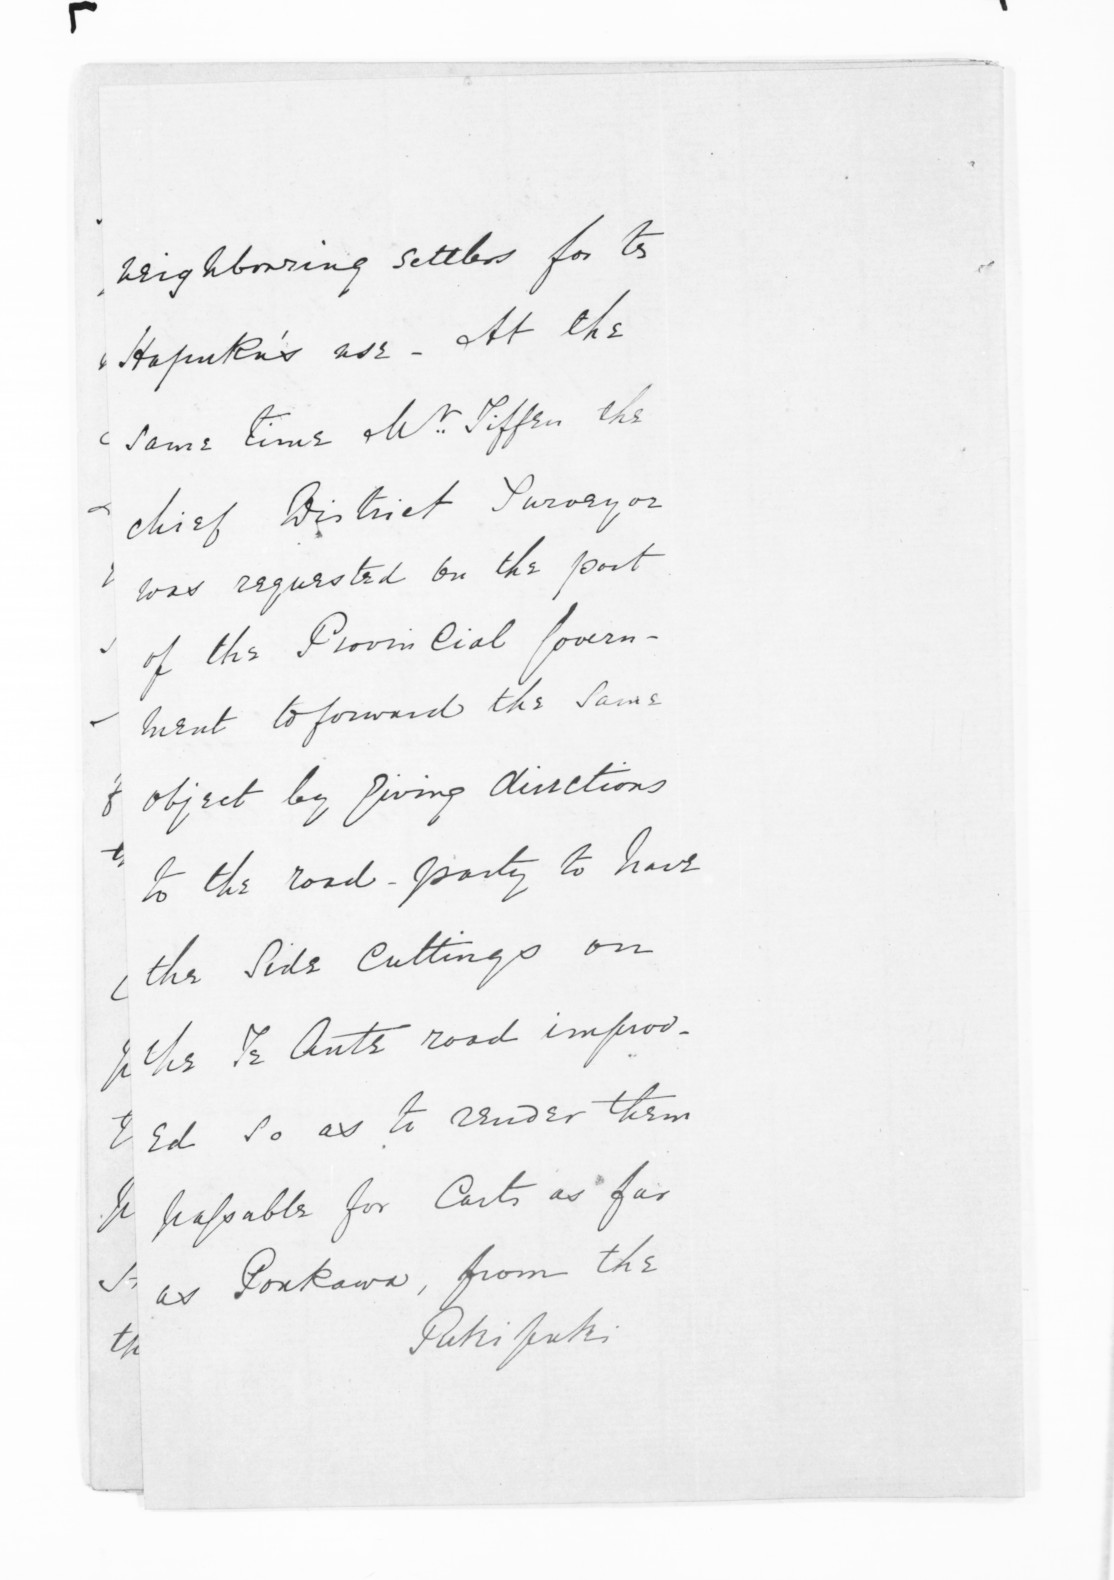 neighbouring settlers for te
Hapuka's use - At the
same time Mr. Tiffen the
chief District Surveyor
was requested on the part
of the Provincial Govern-
ment to forward the same
object by giving directions
to the road-party to have
the side cuttings on
the Te Aute road improv-
ed so as to render them
passable for carts as far
as Poukawa, from the
Pukipuki